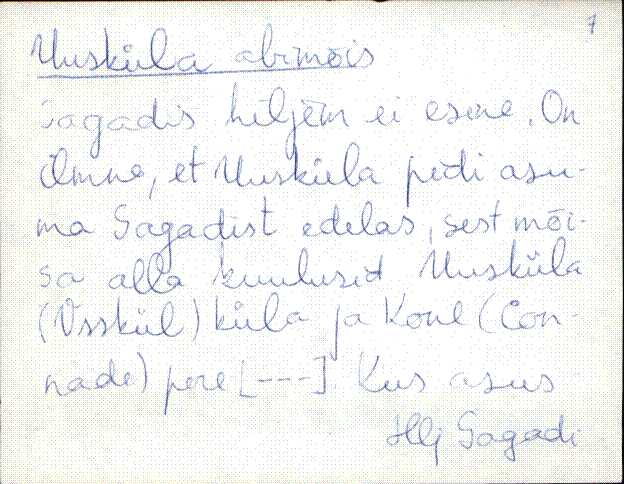 7
Uusküla abimõis
Sagadis hiljem ei esine. On
ilmne, et Uusküla pidi asu-
ma Sagadist edelas, sest mõi-
sa alla kuulusid Uusküla
(Vsskül) küla ja Kone (Con-
nade) pere [---]. Kus asus
Hlj Sagadi